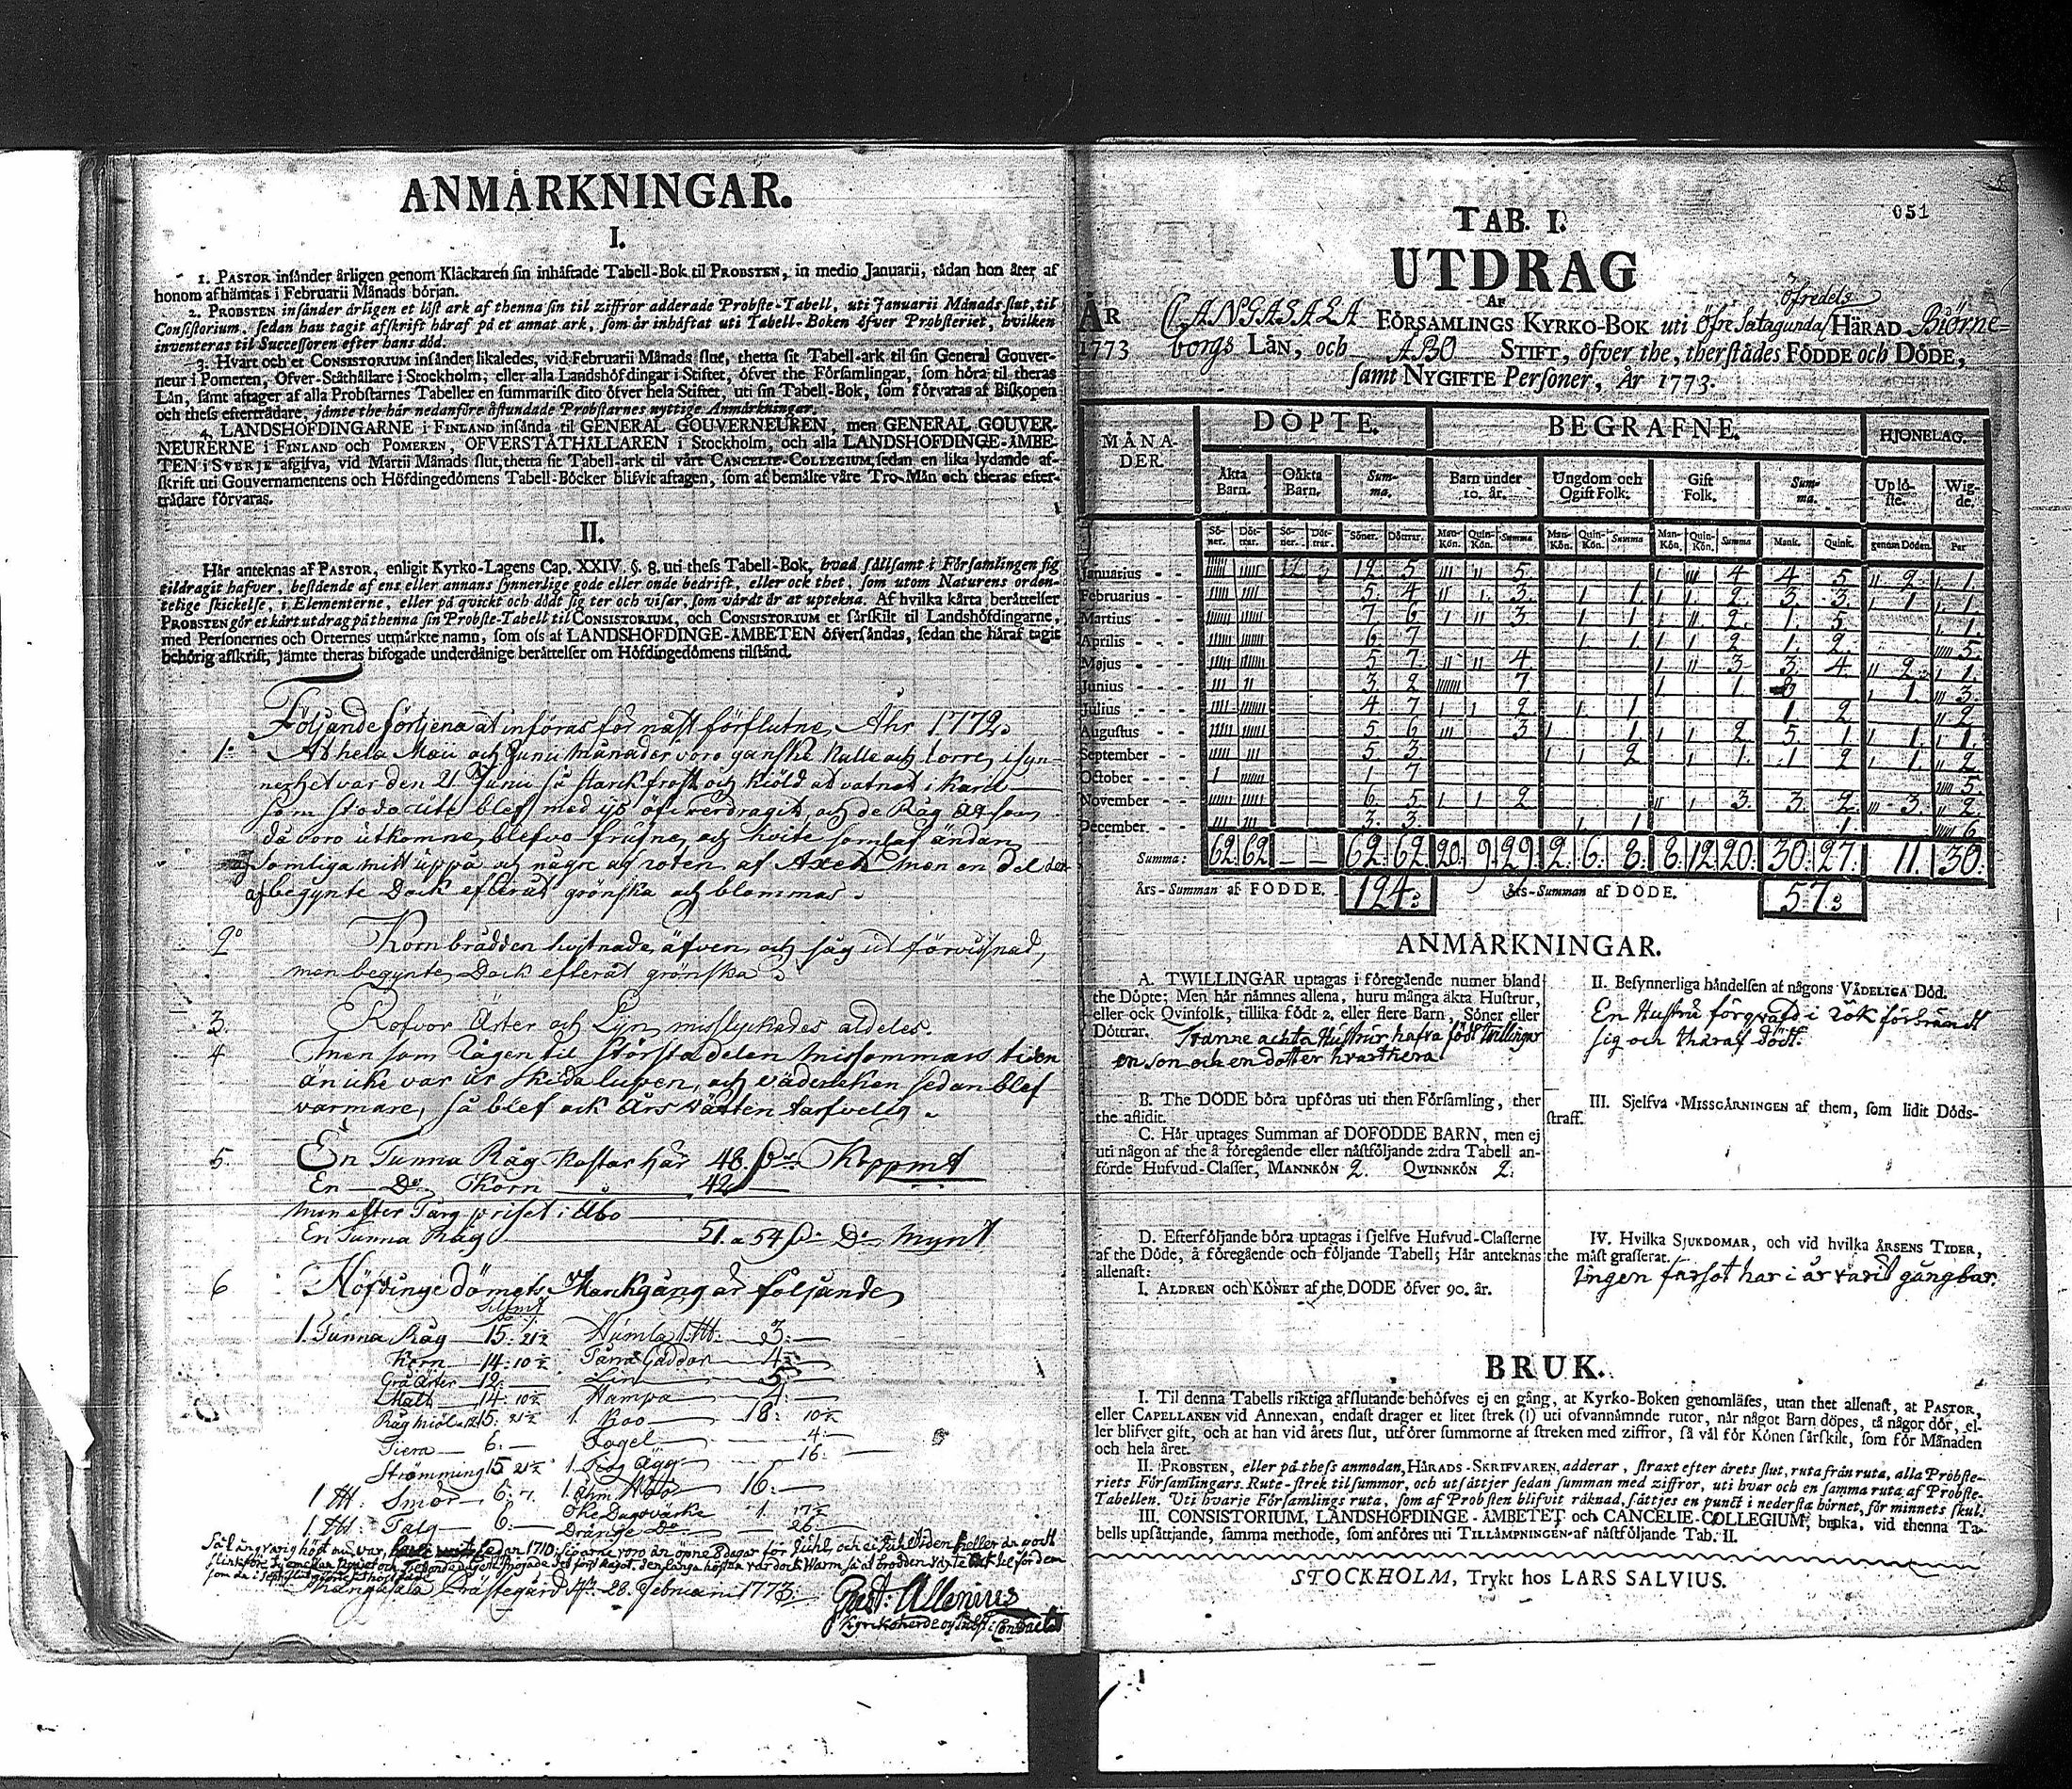 ANMÄRKNINGAR.
I.
1. PASTOR insänder årligen genom Kläckaren sin inhäftade Tabell-Bok til PROBSTEN, in medio Januarii, tädan hon åter af
honom afhämtas i Februarii Månads början.
2. PROBSTEN insänder årligen et löst ark af thenna sin til ziffror adderade Probste-Tabell, uti Januarii Månads slut, til
Consistorium, sedan han tagit afskrift häraf på et annat ark, som är inhäftat uti Tabell-Boken öfver Probsteriet, hvilken
inventeras til Successoren efter hans död.
3. Hvart och et CONSISTORIUM insänder likaledes, vid Februarii Månads slut, thetta sit Tabell-ark til sin General Gouver-
neur i Pomeren, Öfver-Ståthållare i Stockholm, eller alla Landshöfdingar i Stiftet, öfver the Församlingar, som höra til theras
Län, samt aftager af alla Probstarnes Tabeller en summarisk dito öfver hela Stiftet, uti sin Tabell-Bok, som förvaras af Biskopen
och thess efterträdare, jämte the här nedanföre åstundade Probstarnes nyttige Anmärkningar.
4. LANDSHÖFDINGARNE i FINLAND insända til GENERAL GOUVERNEUREN, men GENERAL GOUVER-
NEURERNE i FINLAND och POMEREN, ÖFVERSTÅTHÅLLAREN i Stockholm, och alla LANDSHÖFDINGE-ÄMBE-
TEN i SVERJE afgifva, vid Martii Månads slut, thetta sit Tabell-ark til vårt CANCELIE-COLLEGIUM, sedan en lika lydande af-
skrift uti Gouvernamentens och Höfdingedömens Tabell-Böcker blifvit aftagen, som af bemälte våre Tro-Män och theras efter-
trädare förvaras.
II.
Här anteknas af PASTOR, enligit Kyrko-Lagens Cap. XXIV. §. 8. uti thess Tabell-Bok, hvad sällsamt i Församlingen sig
tildragit hafver, bestående af ens eller annans synnerlige gode eller onde bedrift, eller ock thet, som utom Naturens orden-
telige skickelse, i Elementerne, eller på qvickt och dödt sig ter och visar, som värdt är at uptekna. Af hvilka kårta berättelser
PROBSTEN gör et kårt utdrag på thenna sin Probste-Tabell til CONSISTORIUM, och CONSISTORIUM et särskilt til Landshöfdingarne,
med Personernes och Orternes utmärkte namn, som oss af LANDSHÖFDINGE-ÄMBETEN öfversändas, sedan the häraf tagit
behörig afskrift, jämte theras bifogade underdånige berättelser om Höfdingedömens tilstånd.
Följande förtjena at införas för näst förflutne Åhr 1772.
1: At hela Maii och Junii månader voro ganska kulle och torre, i syn-
nerhet var den 21 Junii så starck frost och kiöld at vatnet i
som stodo ute blef med is öfverdragit, och de Råg Ax som
då voro utkomne, blefvo frusne och hvite, somlaf ändan
somliga mitt uppå och några ag roten af Axet men en del der
af begynte Dock efteråt grönska och blommas.
2o Kornbrådden hvitnade äfven, och såg ut förvisnad,
men begynte Dock efteråt grönska
3. Rofvor Ärter och Lin misslyckades aldeles.
4 Men som Rågen til största delen Missommars tiden
än icke var ur skida lupen, och väderleken sedan blef
varmare, så blef ock Års växten tarfvelig.
5. En Tunna Råg kostar här 48. Kopp mt
En Do Korn 42
Men efter Torg priset i Åbo
En Tunna Råg 51. a 54 Do Mynt
6 Höfdinge dömets Marckgång är följande
Silf mt
1. Tunna Råg 15: 21½ Humla 1 ℔: 3:
Korn 14: 10½ Törra Gäddor 4½
Grå Ärter 12 Lin 5
Malt 14: 10½ Hampa 4
Råg miöl 15: 21½ 1. Koo 18: 10½
Tiera 6: Fogel 4:
Strömming 15 21½ 1. Ägg 16:
1 ℔: Smör 6: 7. 1. Höö 16:
1. ℔: Talg 6: Öke Dagsvärke 1. 17½
Dränge Do 26
Cangasala Prästegård d. 28. Februarii 1773.
Gust: Allenius
Kyrkoherde
051
TAB. I.
UTDRAG
AF
öfredels
ÅR CANGASALA FÖRSAMLINGS KYRKO-BOK uti Öfre Satagunda HÄRAD Biörne=
1773 borgs LÄN, och ABO STIFT, öfver the, therstädes FÖDDE och DÖDE,
samt NYGIFTE Personer, År 1773.
MÅNA-DER. DÖPTE. BEGRAFNE. HJONELAG.
Äkta Barn. Oäkta Barn. Summa. Barn under 10. år. Ungdom och Ogift Folk. Gift Folk. Summa. Uplöste. Wigde.
Söner. Döttrar. Söner. Döttrar. Söner. Döttrar. Man-Kön. Quin-Kön. Summa Man-Kön. Quin-Kön. Summa Man-Kön. Quin-Kön. Summa Mank. Quink. genom Döden. Par
Januarius 12 5 12 5 5 4 4 5 2 1.
Februarius 5 4 3 1 2 3 3 1 1.
Martius 7 6 3 2 1 5 1.
Aprilis 6 7 1 2 1 2 5.
Majus 5 7 4 3 3 4 2 1.
Junius 3 2 7 1 1 3
Julius 4 7 2 1 1 2 2
Augustus 5 6 3 1 2 5 1 1. 1.
September 5 3 2 1 1 2 1. 2
October 1 7 5
November 6 5 2 3 3 2 3 2
December. 3 3 1 1 6
Summa: 62. 62 — — 62. 62 20. 9. 29. 2. 6. 8. 8. 12. 20. 30. 27. 11. 30.
Års-Summan af FÖDDE. 124. Års-Summan af DÖDE. 57.
ANMÄRKNINGAR.
A. TWILLINGAR uptagas i föregående numer bland
the Döpte; Men här nämnes allena, huru många äkta Hustrur,
eller ock Qvinfolk, tillika födt 2, eller flere Barn, Söner eller
Döttrar. Tvänne ächta Hustrur hafva födt Twillingar
en son och en dotter hvarthera
B. The DÖDE böra upföras uti then Församling, ther
the aflidit.
C. Här uptages Summan af DÖFÖDDE BARN, men ej
uti någon af the å föregående eller nästföljande 2:dra Tabell an-
förde Hufvud-Classer, MANNKÖN 2. QWINNKÖN 2.
D. Efterföljande böra uptagas i sjelfve Hufvud-Classerne
af the Döde, å föregående och följande Tabell; Här anteknas
allenast:
I. ÅLDREN och KÖNET af the DÖDE öfver 90. år.
II. Besynnerliga händelsen af någons VÅDELIGA Död.
En Hustru förqvafd i rök förbrändt
sig och theraf dödt.
III. Sjelfva MISSGÄRNINGEN af them, som lidit Döds-
straff.
IV. Hvilka SJUKDOMAR, och vid hvilka ÅRSENS TIDER,
the mäst grasserat.
Ingen farsot har i år varit gångbar.
BRUK.
I. Til denna Tabells riktiga afslutande behöfves ej en gång, at Kyrko-Boken genomläses, utan thet allenast, at PASTOR,
eller CAPELLANEN vid Annexan, endast drager et litet strek (|) uti ofvannämnde rutor, når något Barn döpes, tå någor dör, el-
ler blifver gift, och at han vid årets slut, utförer summorne af streken med ziffror, så väl för Könen särskilt, som för Månaden
och hela året.
II. PROBSTEN, eller på thess anmodan, HÄRADS-SKRIFVAREN, adderar, straxt efter årets slut, ruta från ruta, alla Probste-
riets Församlingars Rute-strek til summor, och utsättjer sedan summan med ziffror, uti hvar och en samma ruta af Probste-
Tabellen. Uti hvarje Församlings ruta, som af Probsten blifvit räknad, sättjes en punct i nedersta hörnet, för minnets skul.
III. CONSISTORIUM, LANDSHÖFDINGE-ÄMBETET och CANCELIE-COLLEGIUM, bruka, vid thenna Ta-
bells upsättjande, samma methode, som anföres uti TILLÄMPNINGEN af nästföljande Tab. II.
STOCKHOLM, Trykt hos LARS SALVIUS.